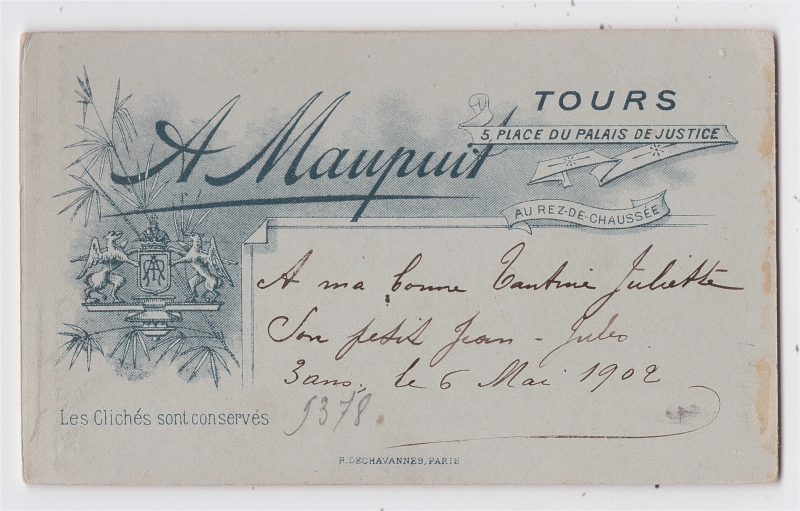 TOURS
A Maupuit
5, PLACE DU PALAIS DE JUSTICE
AU REZ-DE-CHAUSSÉE
A ma bonne Tantine Juliette
Son petit Jean-Jules
3 ans, le 6 Mai 1902
Les Clichés sont conservés
9378
R. DECHAVANNES, PARIS